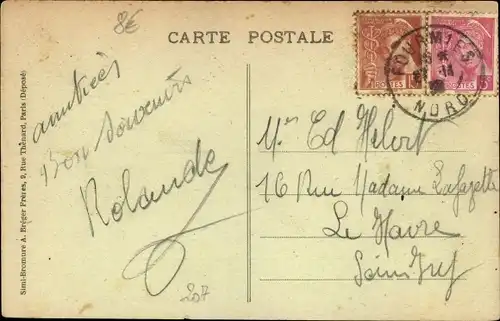 8€
CARTE POSTALE
amitiés
Bon souvenir
Rolande
207
Simi-Bromure A. Bréger Frères, 9, Rue Thénard, Paris (Déposé)
FOURMIES
NORD
POSTES
POSTES
Ed Hebert
16 Rue Madame Lafayette
Le Havre
Seine Inf